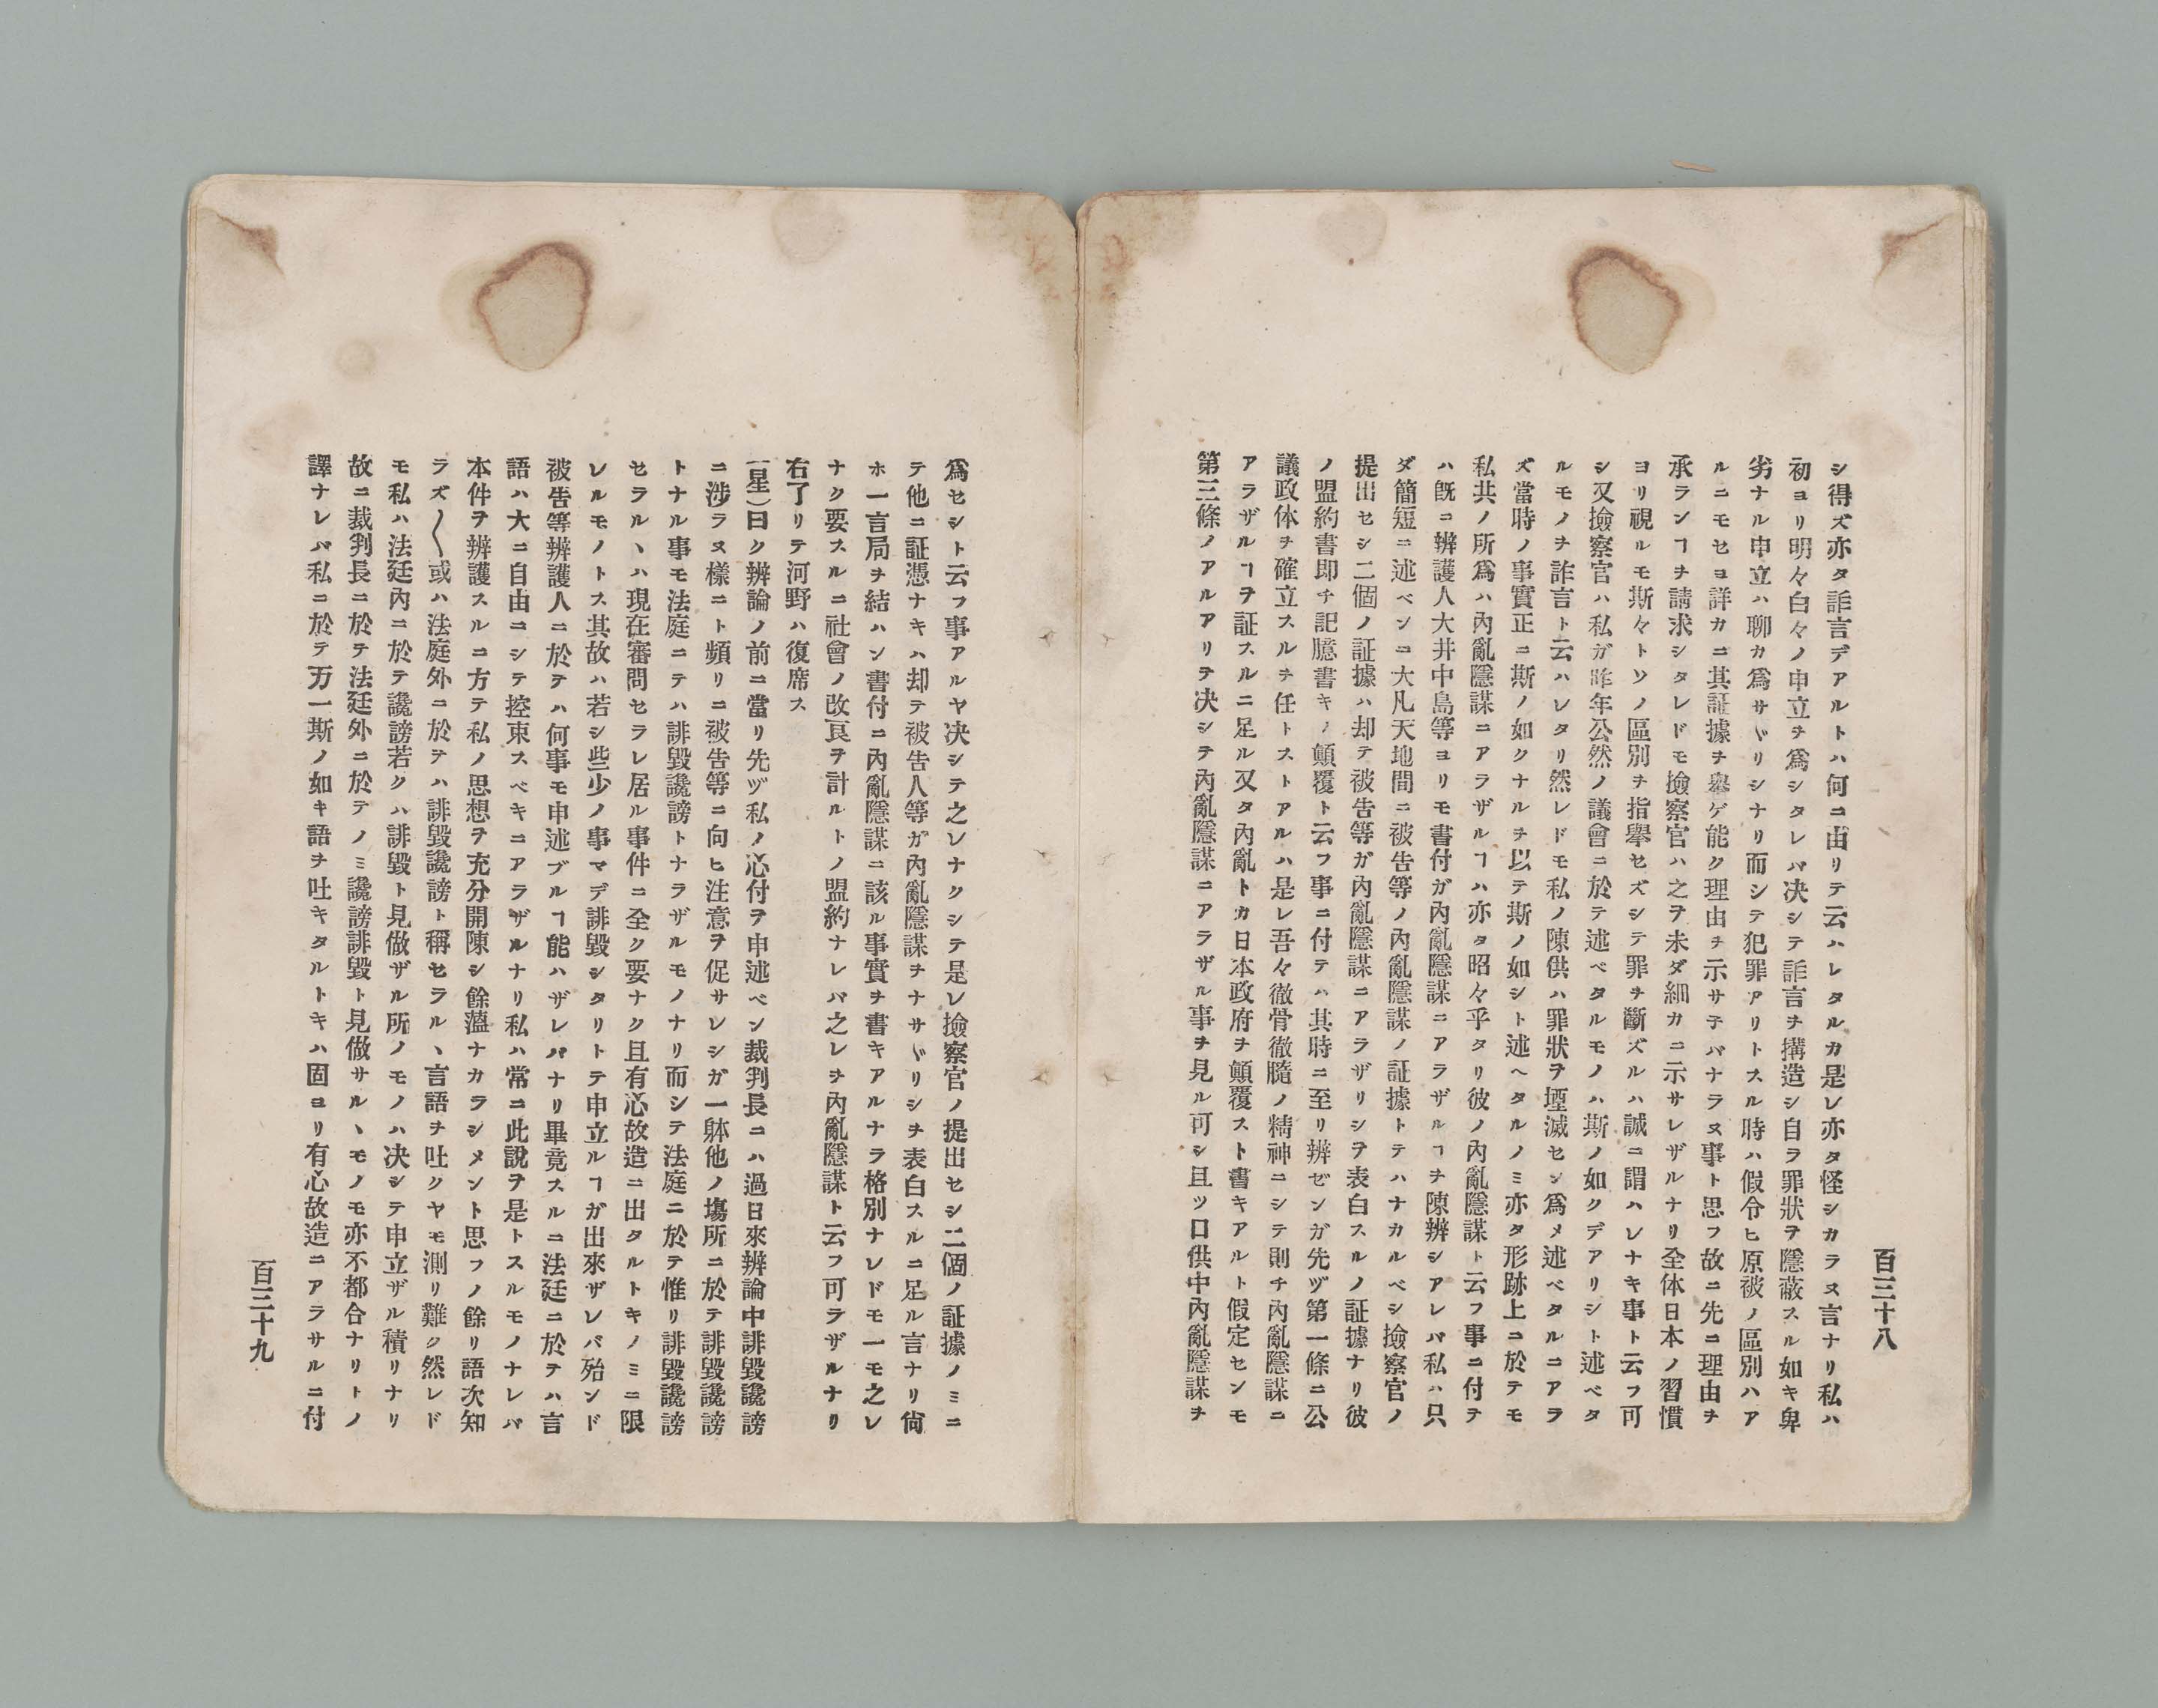 百三十八
シ得ズ亦タ詐言デアルトハ何ニ由リテ云ハレタルカ是レ亦タ怪シカラヌ言ナリ私ハ
初ヨリ明々白々ノ申立ヲ爲シタレバ决シテ詐言ヲ搆造シ自ラ罪狀ヲ隱蔽スル如キ卑
劣ナル申立ハ聊カ爲サヾリシナリ而シテ犯罪アリトスル時ハ假令ヒ原被ノ區別ハア
ルニモセヨ詳カニ其証據ヲ擧ゲ能ク理由ヲ示サヾ子バナラヌ事ト思フ故ニ先ニ理由ヲ
承ランヿヲ請求シタレドモ撿察官ハ之ヲ未ダ細カニ示サレザルナリ全体日本ノ習慣
ヨリ視ルモ斯々トソノ區別ヲ指擧セズシテ罪ヲ斷ズルハ誠ニ謂ハレナキ事ト云フ可
シ又撿察官ハ私ガ昨年公然ノ議會ニ於テ述ベタルモノハ斯ノ如クデアリシト述ベタ
ルモノヲ詐言ト云ハレタリ然レドモ私ノ陳供ハ罪狀ヲ堙滅セシ爲メ述ベタルニアラ
ズ當時ノ事實正ニ斯ノ如クナルヲ以テ斯ノ如シト述ヘタルノミ亦タ形跡上ニ於テモ
私共ノ所爲ハ內亂隱謀ニアラザルヿハ亦タ昭々乎タリ彼ノ內亂隱謀ト云フ事ニ付テ
ハ旣ニ辨護人大井中島等ヨリモ書付ガ內亂隱謀ニアラザルヿヲ陳辨シアレバ私ハ只
ダ簡短ニ述ベンニ大凡天地間ニ被告等ノ內亂隱謀ノ証據トテハナカルベシ撿察官ノ
提出セシ二個ノ証據ハ却テ被告等ガ內亂隱謀ニアラザリシヲ表白スルノ証據ナリ彼
ノ盟約書即チ記臆書キノ顛覆ト云フ事ニ付テハ其時ニ至リ辨ゼンガ先ヅ第一條ニ公
議政体ヲ確立スルヲ任トストアルハ是レ吾々徹骨徹髓ノ精神ニシテ則チ內亂隱謀ニ
アラザルヿヲ証スルニ足ル又タ內亂トカ日本政府ヲ顛覆スト書キアルト假定センモ
第三條ノアルアリテ决シテ內亂隱謀ニアラザル事ヲ見ル可シ且ツ口供中內亂隱謀ヲ
爲セシト云フ事アルヤ决シテ之レナクシテ是レ撿察官ノ提出セシ二個ノ証據ノミニ
テ他ニ証憑ナキハ却テ被告人等ガ內亂隱謀ヲナサヾリシヲ表白スルニ足ル言ナリ尙
ホ一言局ヲ結ハン書付ニ內亂隱謀ニ該ル事實ヲ書キアルナラ格別ナレドモ一モ之レ
ナク要スルニ社會ノ改良ヲ計ルトノ盟約ナレバ之レヲ內亂隱謀ト云フ可ラザルナリ
右了リテ河野ハ復席ス
(星)曰ク辨論ノ前ニ當リ先ヅ私ノ心付ヲ申述ベン裁判長ニハ過日來辨論中誹毀讒謗
ニ涉ラヌ樣ニト頻リニ被告等ニ向ヒ注意ヲ促サレシガ一躰他ノ塲所ニ於テ誹毀讒謗
トナル事モ法庭ニテハ誹毀讒謗トナラザルモノナリ而シテ法庭ニ於テ惟リ誹毀讒謗
セラルヽハ現在審問セラレ居ル事件ニ全ク要ナク且有心故造ニ出タルトキノミニ限
レルモノトス其故ハ若シ些少ノ事マデ誹毀シタリトテ申立ルヿガ出來ザレバ殆ンド
被告等辨護人ニ於テハ何事モ申述ブルヿ能ハザレバナリ畢竟スルニ法廷ニ於テハ言
語ハ大ニ自由ニシテ控束スベキニアラザルナリ私ハ常ニ此說ヲ是トスルモノナレバ
本件ヲ辨護スルニ方テ私ノ思想ヲ充分開陳シ餘薀ナカラシメント思フノ餘リ語次知
ラズ〱或ハ法庭外ニ於テハ誹毀讒謗ト稱セラルヽ言語ヲ吐クヤモ測リ難ク然レド
モ私ハ法廷內ニ於テ讒謗若クハ誹毀ト見做ザル所ノモノハ决シテ申立ザル積リナリ
故ニ裁判長ニ於テ法廷外ニ於テノミ讒謗誹毀ト見做サルヽモノモ亦不都合ナリトノ
譯ナレバ私ニ於テ万一斯ノ如キ語ヲ吐キタルトキハ固ヨリ有心故造ニアラサルニ付
百三十九